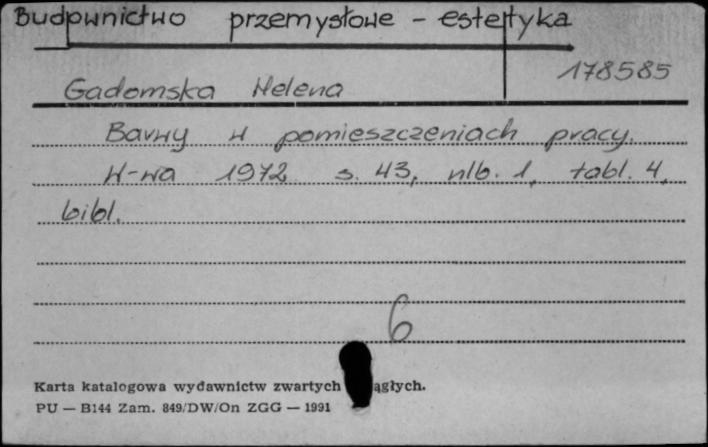 Budownictwo przemysłowe - estetyka
178585
Gadomska Helena
Barwy w pomieszczeniach pracy.
W-wa 1972 s. 43, nlb. 1, tabl. 4,
bibl.
6
Karta katalogowa wydawnictw zwartych ągłych.
PU — B144 Zam. 849/DW/On ZGG — 1991